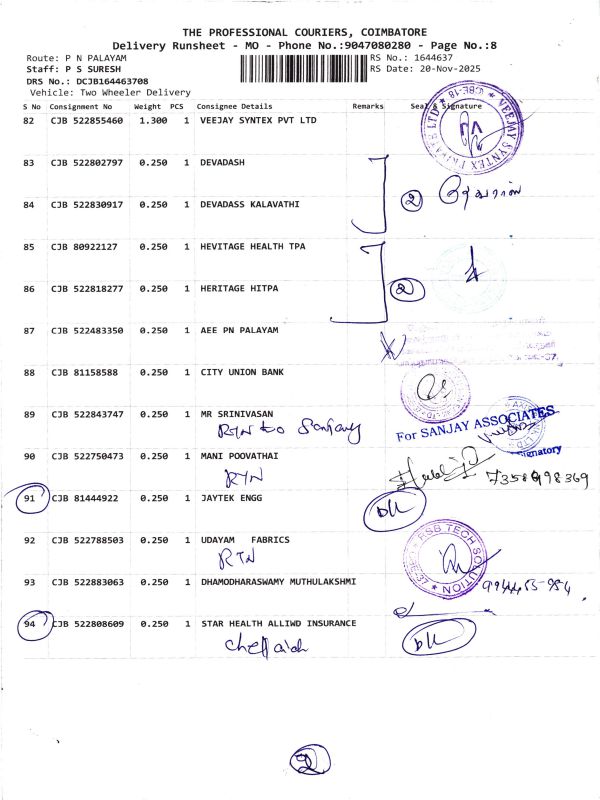 THE PROFESSIONAL COURIERS, COIMBATORE
Delivery Runsheet - MO - Phone No.:9047080280 - Page No.:8
Route: P N PALAYAM RS No.: 1644637
Staff: P S SURESH RS Date: 20-Nov-2025
DRS No.: DCJB164463708
Vehicle: Two Wheeler Delivery
S No Consignment No Weight PCS Consignee Details Remarks Seal & Signature
82 CJB 522855460 1.300 1 VEEJAY SYNTEX PVT LTD
VEEJAY SYNTEX PRIVATE LTD CBE-18
83 CJB 522802797 0.250 1 DEVADASH
2 தேவராஸ்
84 CJB 522830917 0.250 1 DEVADASS KALAVATHI
85 CJB 80922127 0.250 1 HEVITAGE HEALTH TPA
86 CJB 522818277 0.250 1 HERITAGE HITPA
2
87 CJB 522483350 0.250 1 AEE PN PALAYAM
88 CJB 81158588 0.250 1 CITY UNION BANK
89 CJB 522843747 0.250 1 MR SRINIVASAN
RTN to Sanjay
For SANJAY ASSOCIATES
90 CJB 522750473 0.250 1 MANI POOVATHAI
RTN
7358998369
91 CJB 81444922 0.250 1 JAYTEK ENGG
DL
92 CJB 522788503 0.250 1 UDAYAM FABRICS
RTN
RSB TECH SOLUTION
93 CJB 522883063 0.250 1 DHAMODHARASWAMY MUTHULAKSHMI
94 CJB 522808609 0.250 1 STAR HEALTH ALLIWD INSURANCE
DL
2